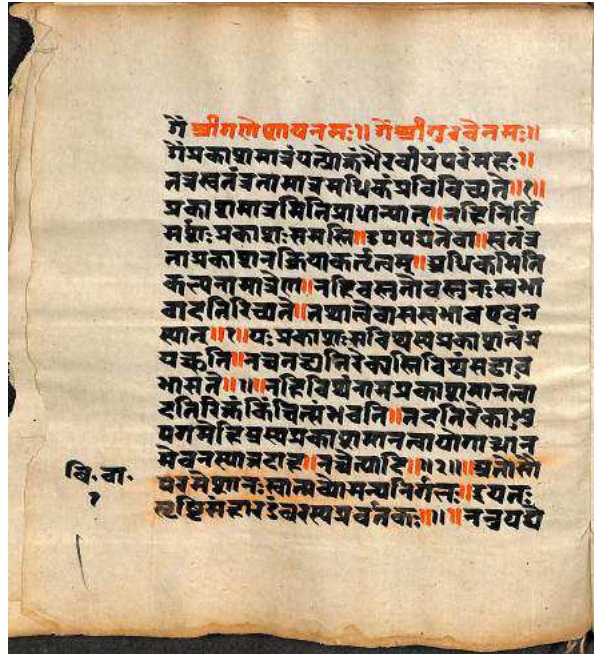 ॐ श्रीगणेशायनमः॥ ॐ श्रीगुरवेनमः॥
ॐप्रकाशमात्रंयत्प्रोक्तंभैरवीयंपरंमहः॥
तत्रस्वतंत्रतामात्रमधिकंप्रविविच्यते॥१॥
प्रकाशमात्रमितिप्राधान्यात्॥नहिनिर्वि
मर्शःप्रकाशःसमस्ति॥उपपद्यतेवा॥स्वतंत्र
ताप्रकाशनक्रियाकर्तृत्वम्॥अधिकमिति
कल्पनामात्रेण॥नहिवस्तुतोवस्तुनःस्वभा
वादतिरिच्यते॥तथात्वेवासस्वभावएवन
स्यात्॥१॥यःप्रकाशःसविश्वस्यप्रकाशत्वंप्र
यच्छति॥नचतद्व्यतिरेक्यस्तिविश्वंसद्वाव
भासते॥॥नहिविश्वंनामप्रकाशमानत्वा
दतिरिक्तंकिंचित्संभवति॥तदतिरेकाभ्यु
पगमेहिअस्यप्रकाशमानत्वायोगाद्भान
मेवनस्यात्तदाह॥नचेत्यादि॥॥२॥॥अतोसौ
परमेशानःस्वात्मव्योमन्यनिर्गलः॥इयतः
सृष्टिसंहाराडंबरस्यप्रवर्तकः॥॥॥ननुयद्ये
वि.वा.
१